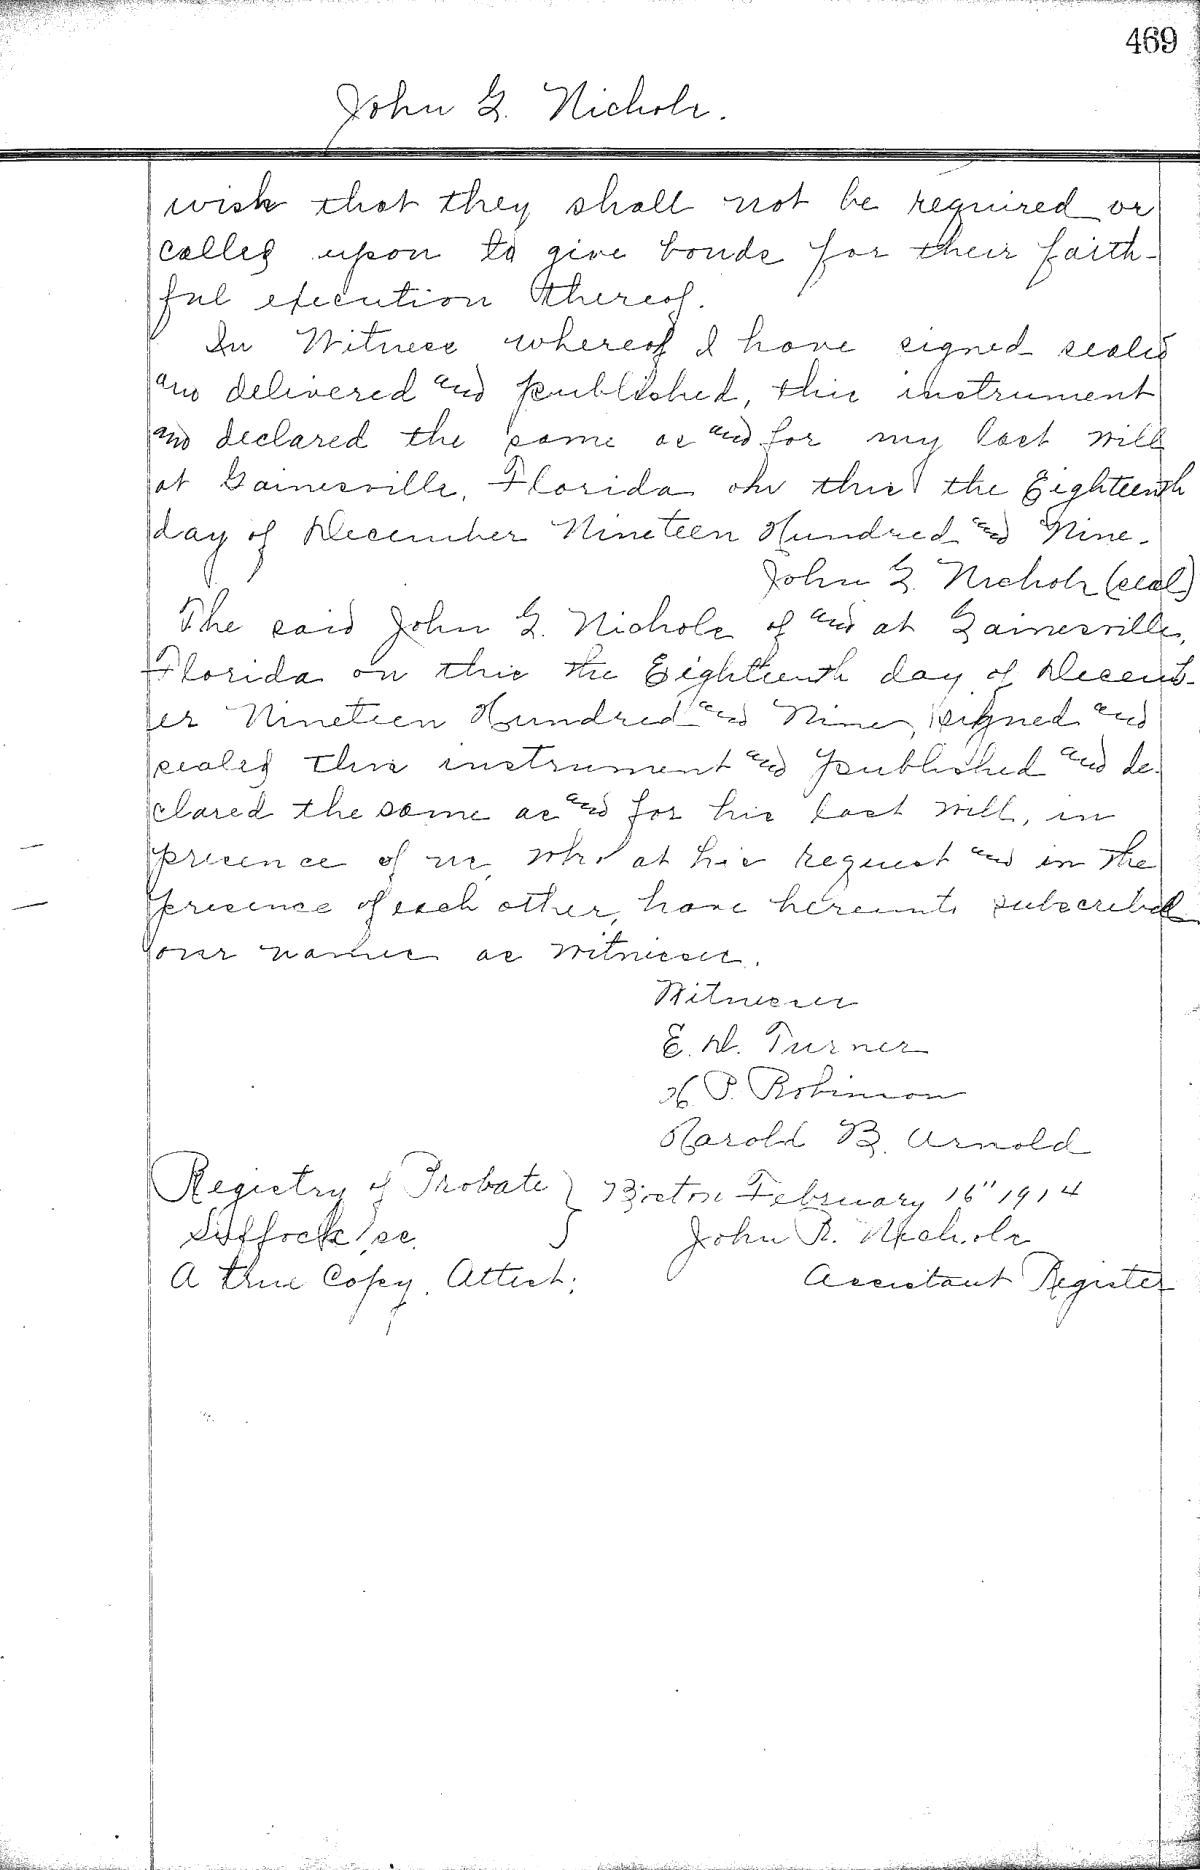 469
John G. Nichols.
wish that they shall not be required or
called upon to give bonds for their faith-
ful execution thereof.
In Witness whereof I have signed sealed
and delivered and published, this instrument
and declared the same as and for my last will
at Gainesville, Florida on this the Eighteenth
day of December Nineteen Hundred and Nine.
John G. Nichols (seal)
The said John G. Nichols of and at Gainesville,
Florida on this the Eighteenth day of Decemb-
er Nineteen Hundred and Nine, signed and
sealed this instrument and published and de-
clared the same as and for his last will, in
presence of us, who at his request and in the
presence of each other, have hereunto subscribed
our names as witnesses.
Witnesses
E. D. Turner
H. P. Robinson
Harold B. Arnold
Registry of Probate } Boston February 16" 1914
Suffock, ss. John R. Nichols
A true Copy. Attest: Assistant Register